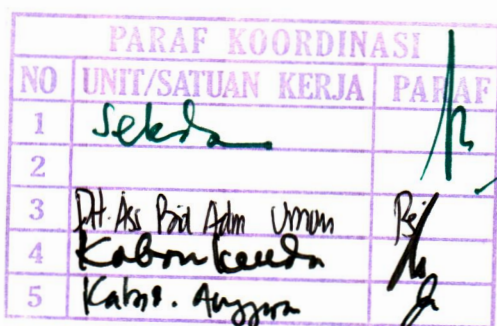 PARAF KOORDINASI
NO UNIT/SATUAN KERJA PARAF
1 Sekda
2
3 Plt. Ass Bid Adm Umum
4 Kaban keuda
5 Kabid. Anggaran